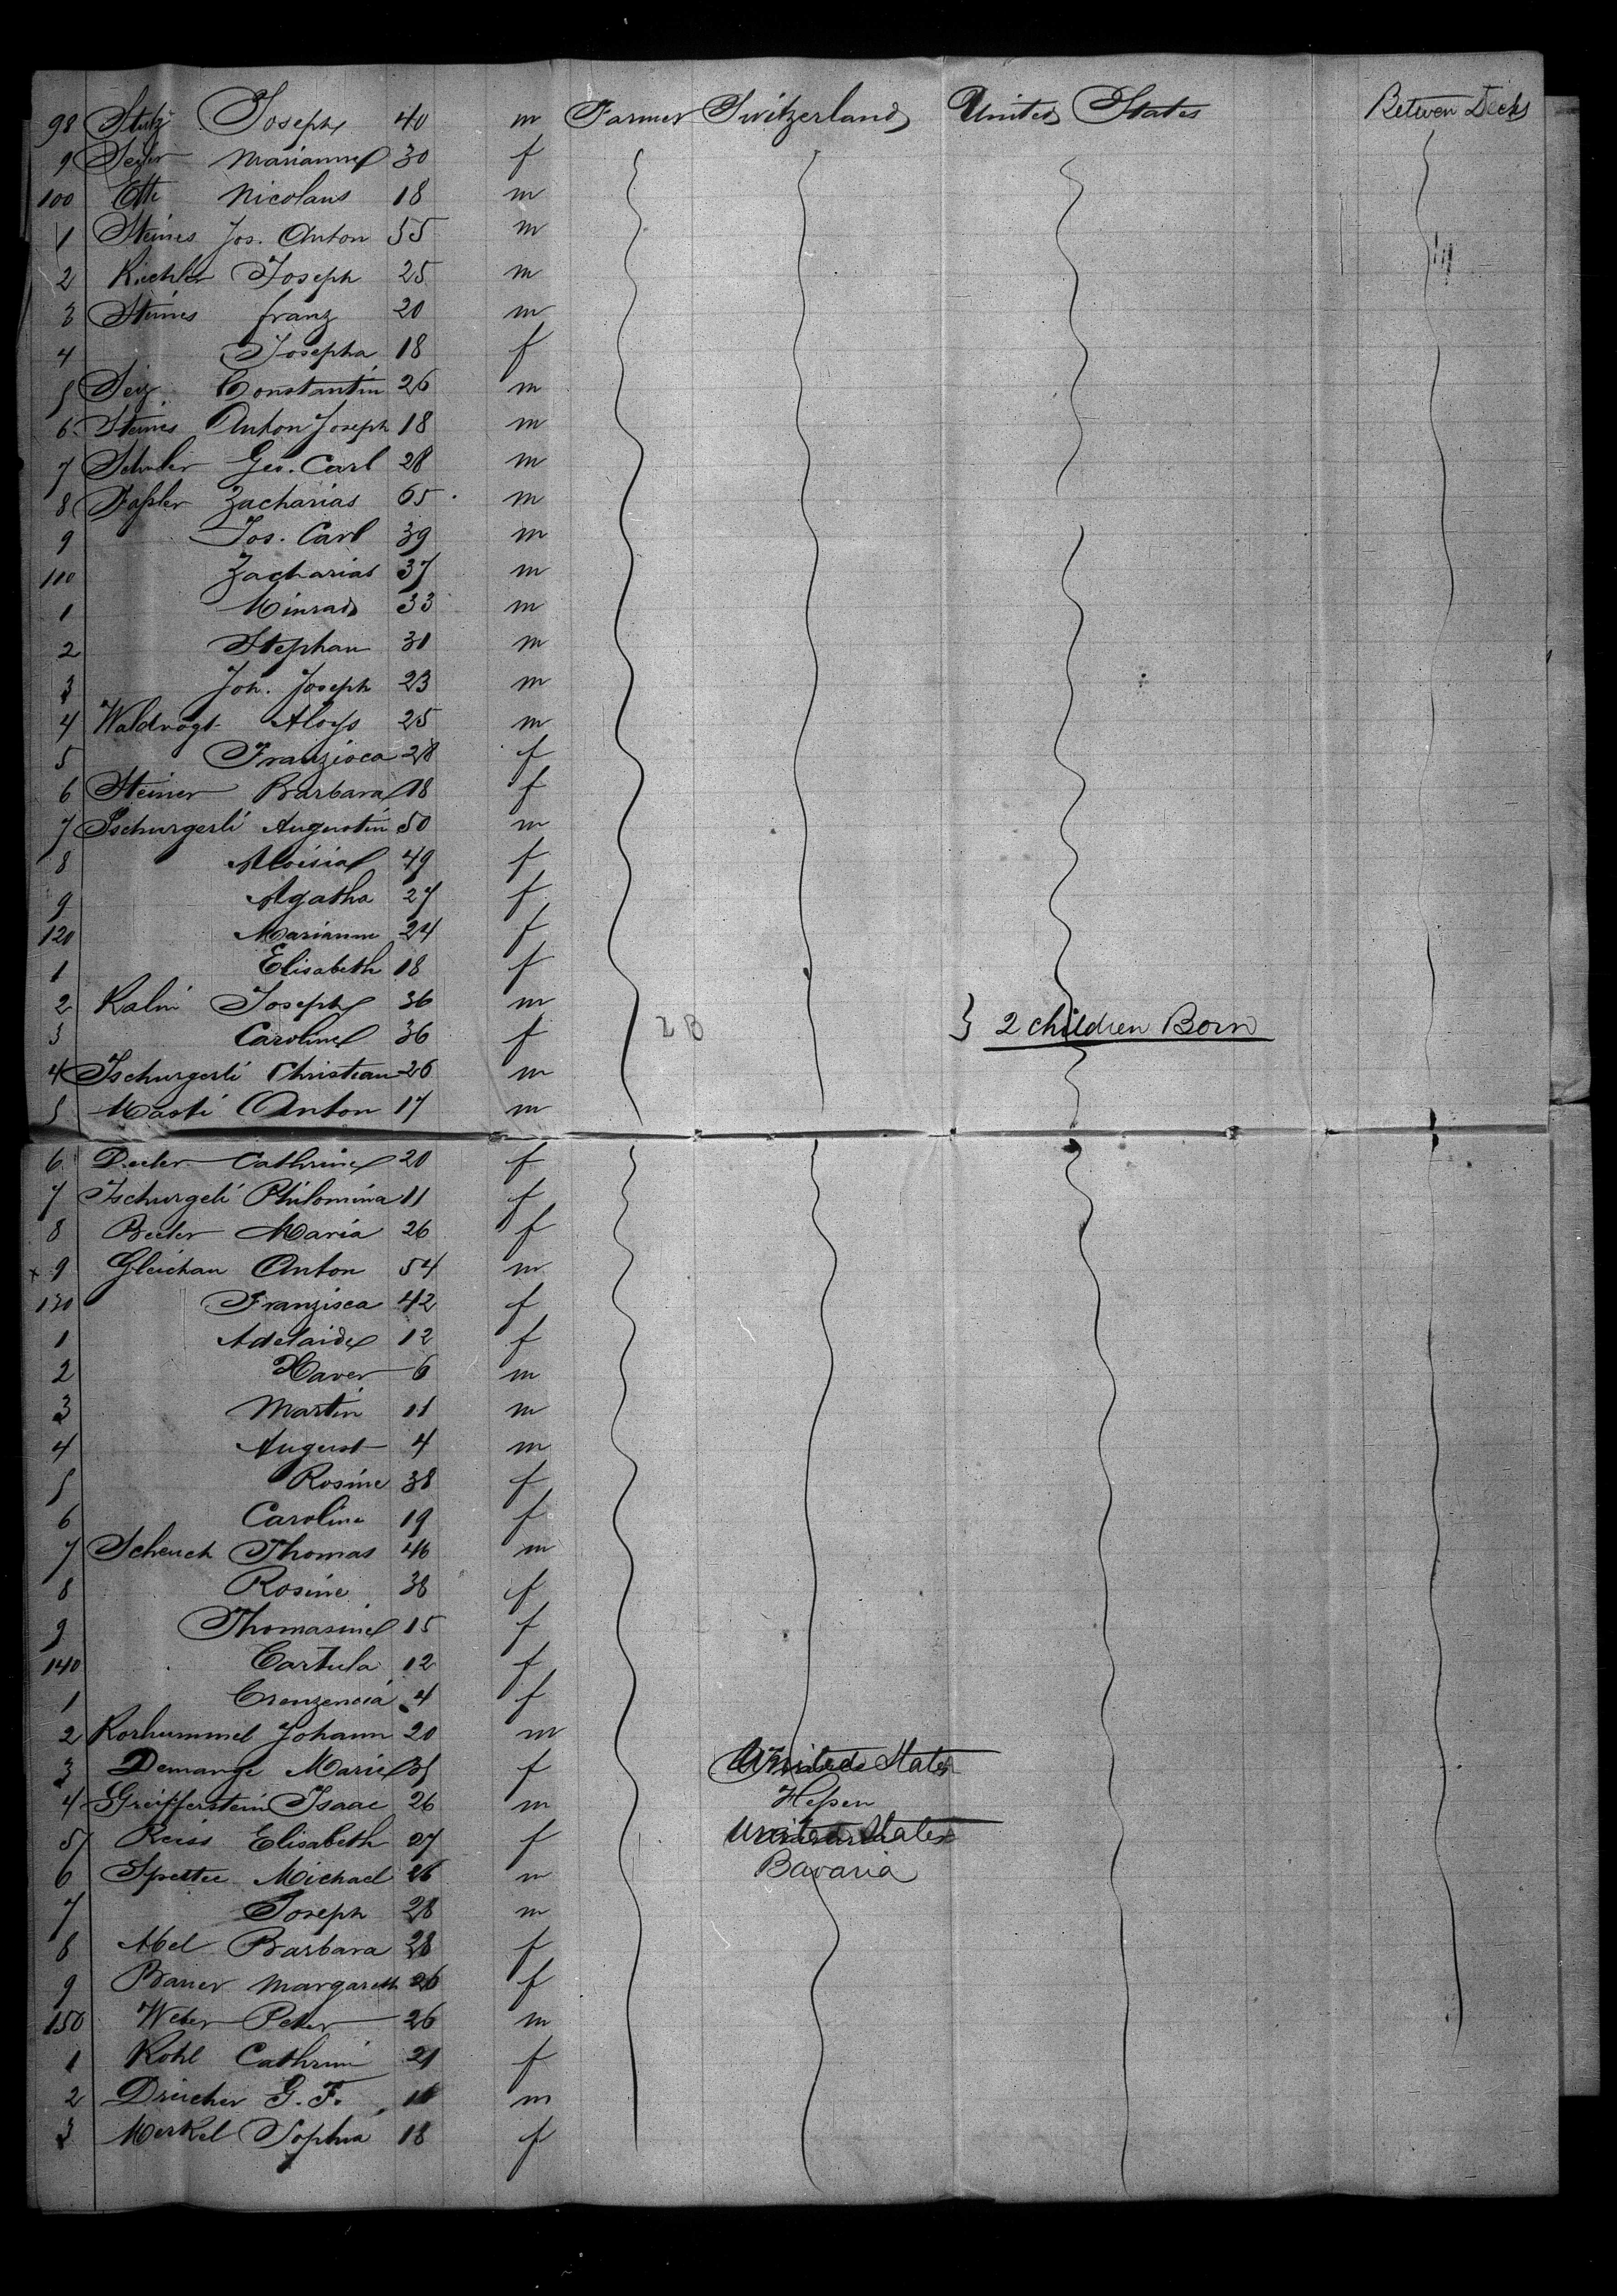 98 Stutz Joseph 40 m Farmer Switzerland United States Between Decks
9 Seiler Marianne 30 f
100 Ett Nicolaus 18 m
1 Steines Jos. Anton 55 m
2 Kiechler Joseph 25 m
3 Steines franz 20 m
4 Josepha 18 f
5 Seiz Constantin 26 m
6 Steines Anton Joseph 18 m
7 Schuler Geo. Carl 28 m
8 Faßler Zacharias 65 m
9 Jos. Carl 39 m
110 Zacharias 37 m
1 Minrad 33 m
2 Stephan 31 m
3 Joh. Joseph 23 m
4 Waldvogt Aloys 25 m
5 Franzisca 28 f
6 Steiner Barbara 18 f
7 Tschurgerli Augustin 50 m
8 Aloisia 49 f
9 Agatha 27 f
120 Mariann 24 f
1 Elisabeth 18 f
2 Kalin Joseph 36 m
3 Caroline 36 f 2B } 2 children Born
4 Tschurgerli Christian 26 m
5 Masti Anton 17 m
6 Deeler Cathrine 20 f
7 Tschurgeli Philomina 11 f
8 Beeler Maria 26 f
x 9 Gleichan Anton 54 m
130 Franzisca 42 f
1 Adelaide 12 f
2 Xaver 6 m
3 Martin 11 m
4 August 4 m
5 Rosine 38 f
6 Caroline 19 f
7 Scheuch Thomas 46 m
8 Rosine 38 f
9 Thomasine 15 f
140 Cartula 12 f
1 Crenzencia 4 f
2 Korhummel Johann 20 m
3 Demange Marie f United States
4 Greifferstein Isaac 26 m Heßen
5 Reiss Elisabeth 27 f United States
6 Michael 26 m Bavaria
7 Joseph 28 m
8 Abel Barbara 28 f
9 Bauer Margareth 26 f
150 Weber Peter 26 m
1 Kohl Cathrini 21 f
2 Dreicher G. F. m
3 Merkel Sophia 18 f